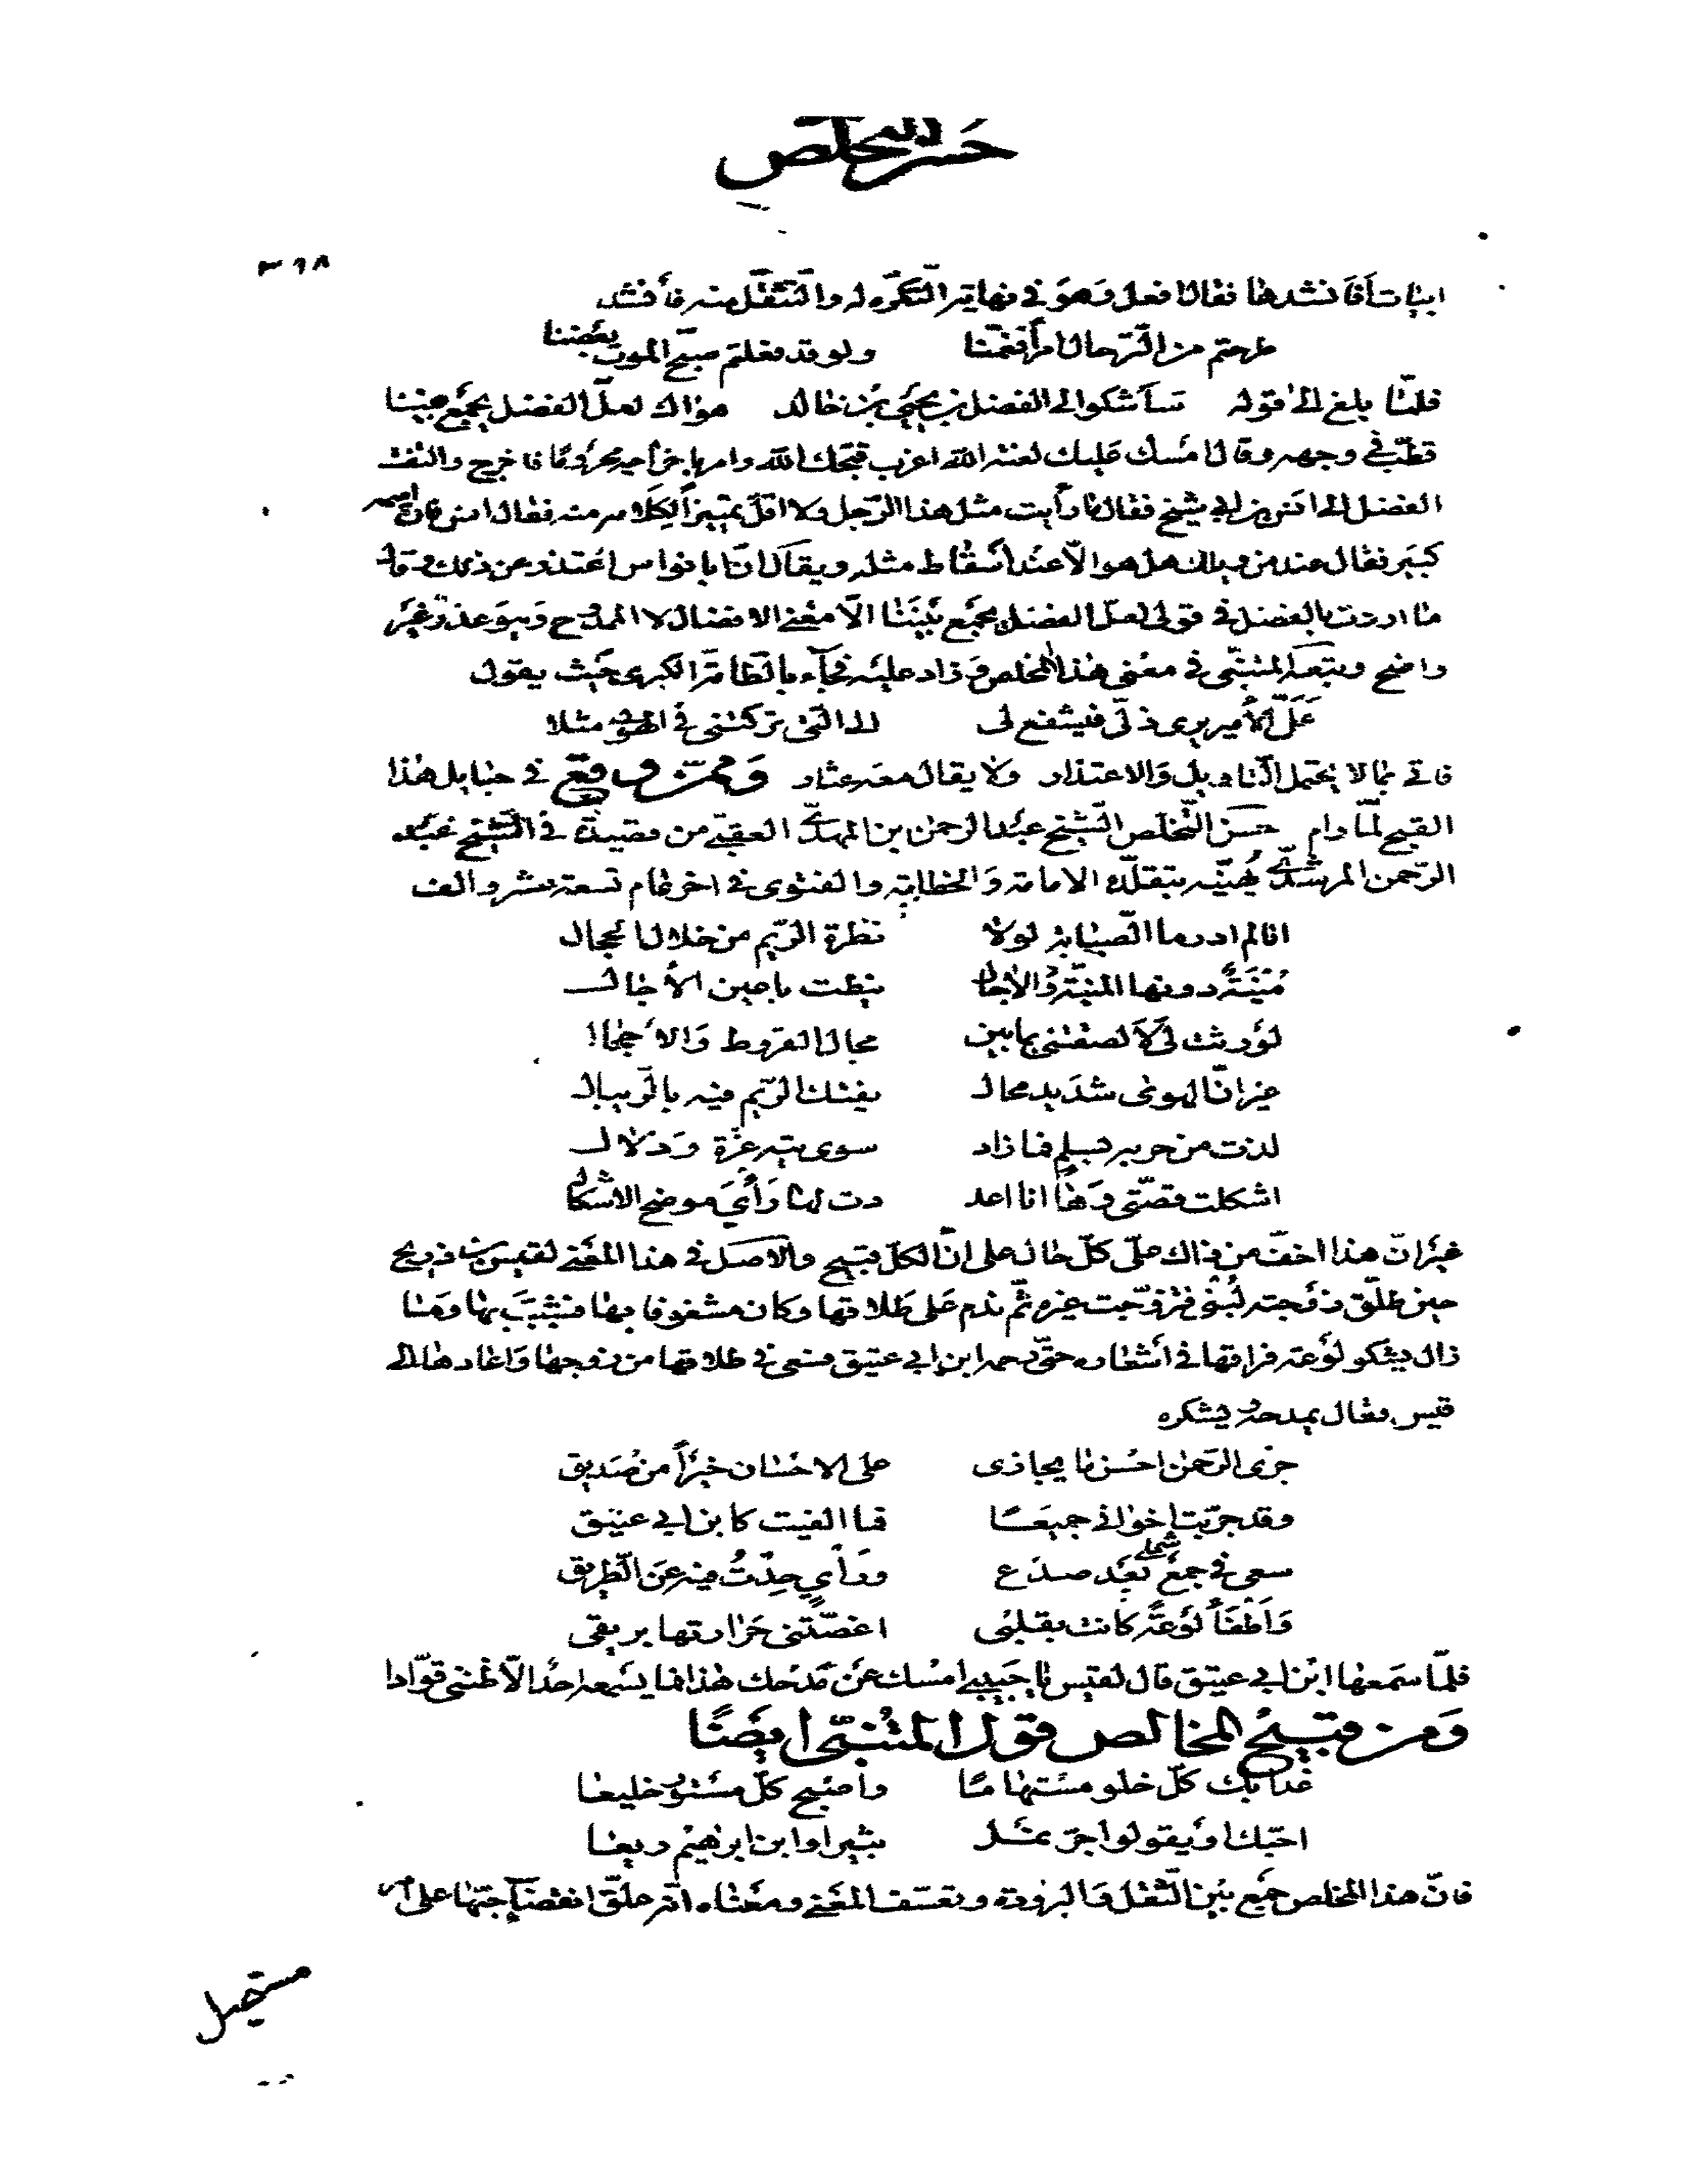 حسن التخلص
٣٦٨
ابياتا فانشدها فقال افعل وهو في نهاية التكره له والتثقل منه فانشد
طرحتم من الترحال امرا فغمنا ولو قد فعلتم صبح الموت بعضنا
فلما بلغ الى قوله سأشكو الى الفضل بن يحيى بن خالد هواك لعل الفضل يجمع بيننا
قطب في وجهه وقال امسك عليك لعنة الله اعزب قبحك الله وامر باخراجه محروما فاخرج والتفت
الفضل الى انس بن ابي شيخ فقال ما رأيت مثل هذا الرجل ولا اقل تمييزا لكلام منه فقال انس فان اسمه
كبير فقال عند من ويلك هل هو الا عند اسقاط مثله ويقال ان ابا نواس اعتذر عن ذلك وقال
ما اردت بالفضل في قولي لعل الفضل يجمع بيننا الا معنى الافضال لا الممدوح وهو عذر غير
واضح وتبعه المتنبي في معنى هذا المخلص وزاد عليه فجاء بالطامة الكبرى حيث يقول
عل الأمير يرى ذلي فيشفع لي الى التي تركتني في الهوى مثلا
فاتى بما لا يحتمل التاويل والاعتذار ولا يقال معه عثار وممن وقع في حبايل هذا
القبيح لما رام حسن التخلص الشيخ عبد الرحمن بن المهدي العقبي من قصيدة في الشيخ عبد
الرحمن المرشدي يهنيه بتقلد الامامة والخطابة والفتوى في اخر عام تسعة عشر والف
انا لم ادر ما الصبابة لولا نظرة الريم من خلال الحجال
منية دونها المنية والاجال نيطت باعين الآجال
لؤرثت لي لانصفتني بما بين مجال القروط والاحجال
غير ان الهوى شديد محال يفتك الريم فيه بالريبال
لذت من حربه بسلم فما زاد سوى تيه عزة ودلال
اشكلت قصتي وها انا اعد دت لها رأي موضح الاشكال
غير ان هذا اخف من ذاك على كل حال على ان الكل قبيح والاصل في هذا المعنى لقيس بن ذريح
حين طلق زوجته لبنى فتزوجت غيره ثم ندم على طلاقها وكان مشغوفا بها فتشبب بها وما
زال يشكو لوعة فراقها في أشعاره حتى رحمه ابن ابي عتيق فسعى في طلاقها من زوجها واعادها الى
قيس فقال يمدحه ويشكره
جزى الرحمن احسن ما يجازى على الاحسان خيرا من صديق
وقد جربت إخواني جميعا فما الفيت كابن ابي عتيق
سعى في جمع شملي بعد صدع ورأي حدت فيه عن الطريق
وأطفأ لوعة كانت بقلبي اغصتني حرارتها بريقي
فلما سمعها ابن ابي عتيق قال لقيس يا حبيبي امسك عن مدحك هذا فما يسمعه احد الا ظنني قوادا
ومن قبيح المخالص قول المتنبي ايضا
غدا بك كل خلو مستهاما واصبح كل مستور خليعا
احبك او يقولوا جر نمل ثبيرا او ابن ابراهيم ريعا
فان هذا المخلص جمع بين الثقل والبرودة وتعسف المعنى ومعناه انه علق انقضاء حبها على امر
مستحيل